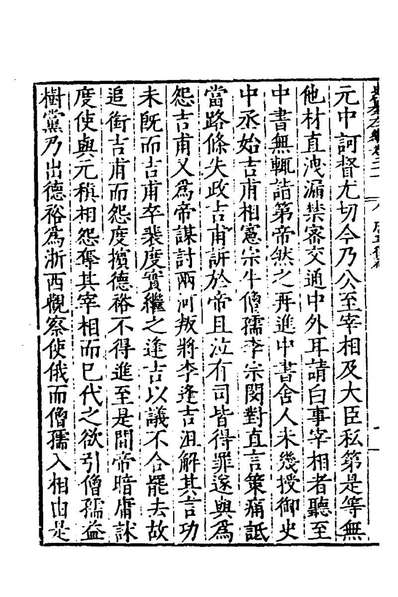 元中訶督尤切今乃公至宰相及大臣私第是等無
他材直洩漏禁密交通中外耳請白事宰相者聽至
中書無輒詣第帝然之再進中書舍人未幾授御史
中丞始吉甫相憲宗牛僧孺李宗閔對直言策痛詆
當路條失政吉甫訴於帝且泣有司皆得罪遂與為
怨吉甫又為帝謀討兩河叛將李逢吉沮解其言功
未旣而吉甫卒裴度實繼之逢吉以議不合罷去故
追銜吉甫而怨度擯德裕不得進至是間帝暗庸訹
度使與元稹相怨奪其宰相而已代之欲引僧孺益
樹黨乃出德裕為浙西觀察使俄而僧孺入相由是